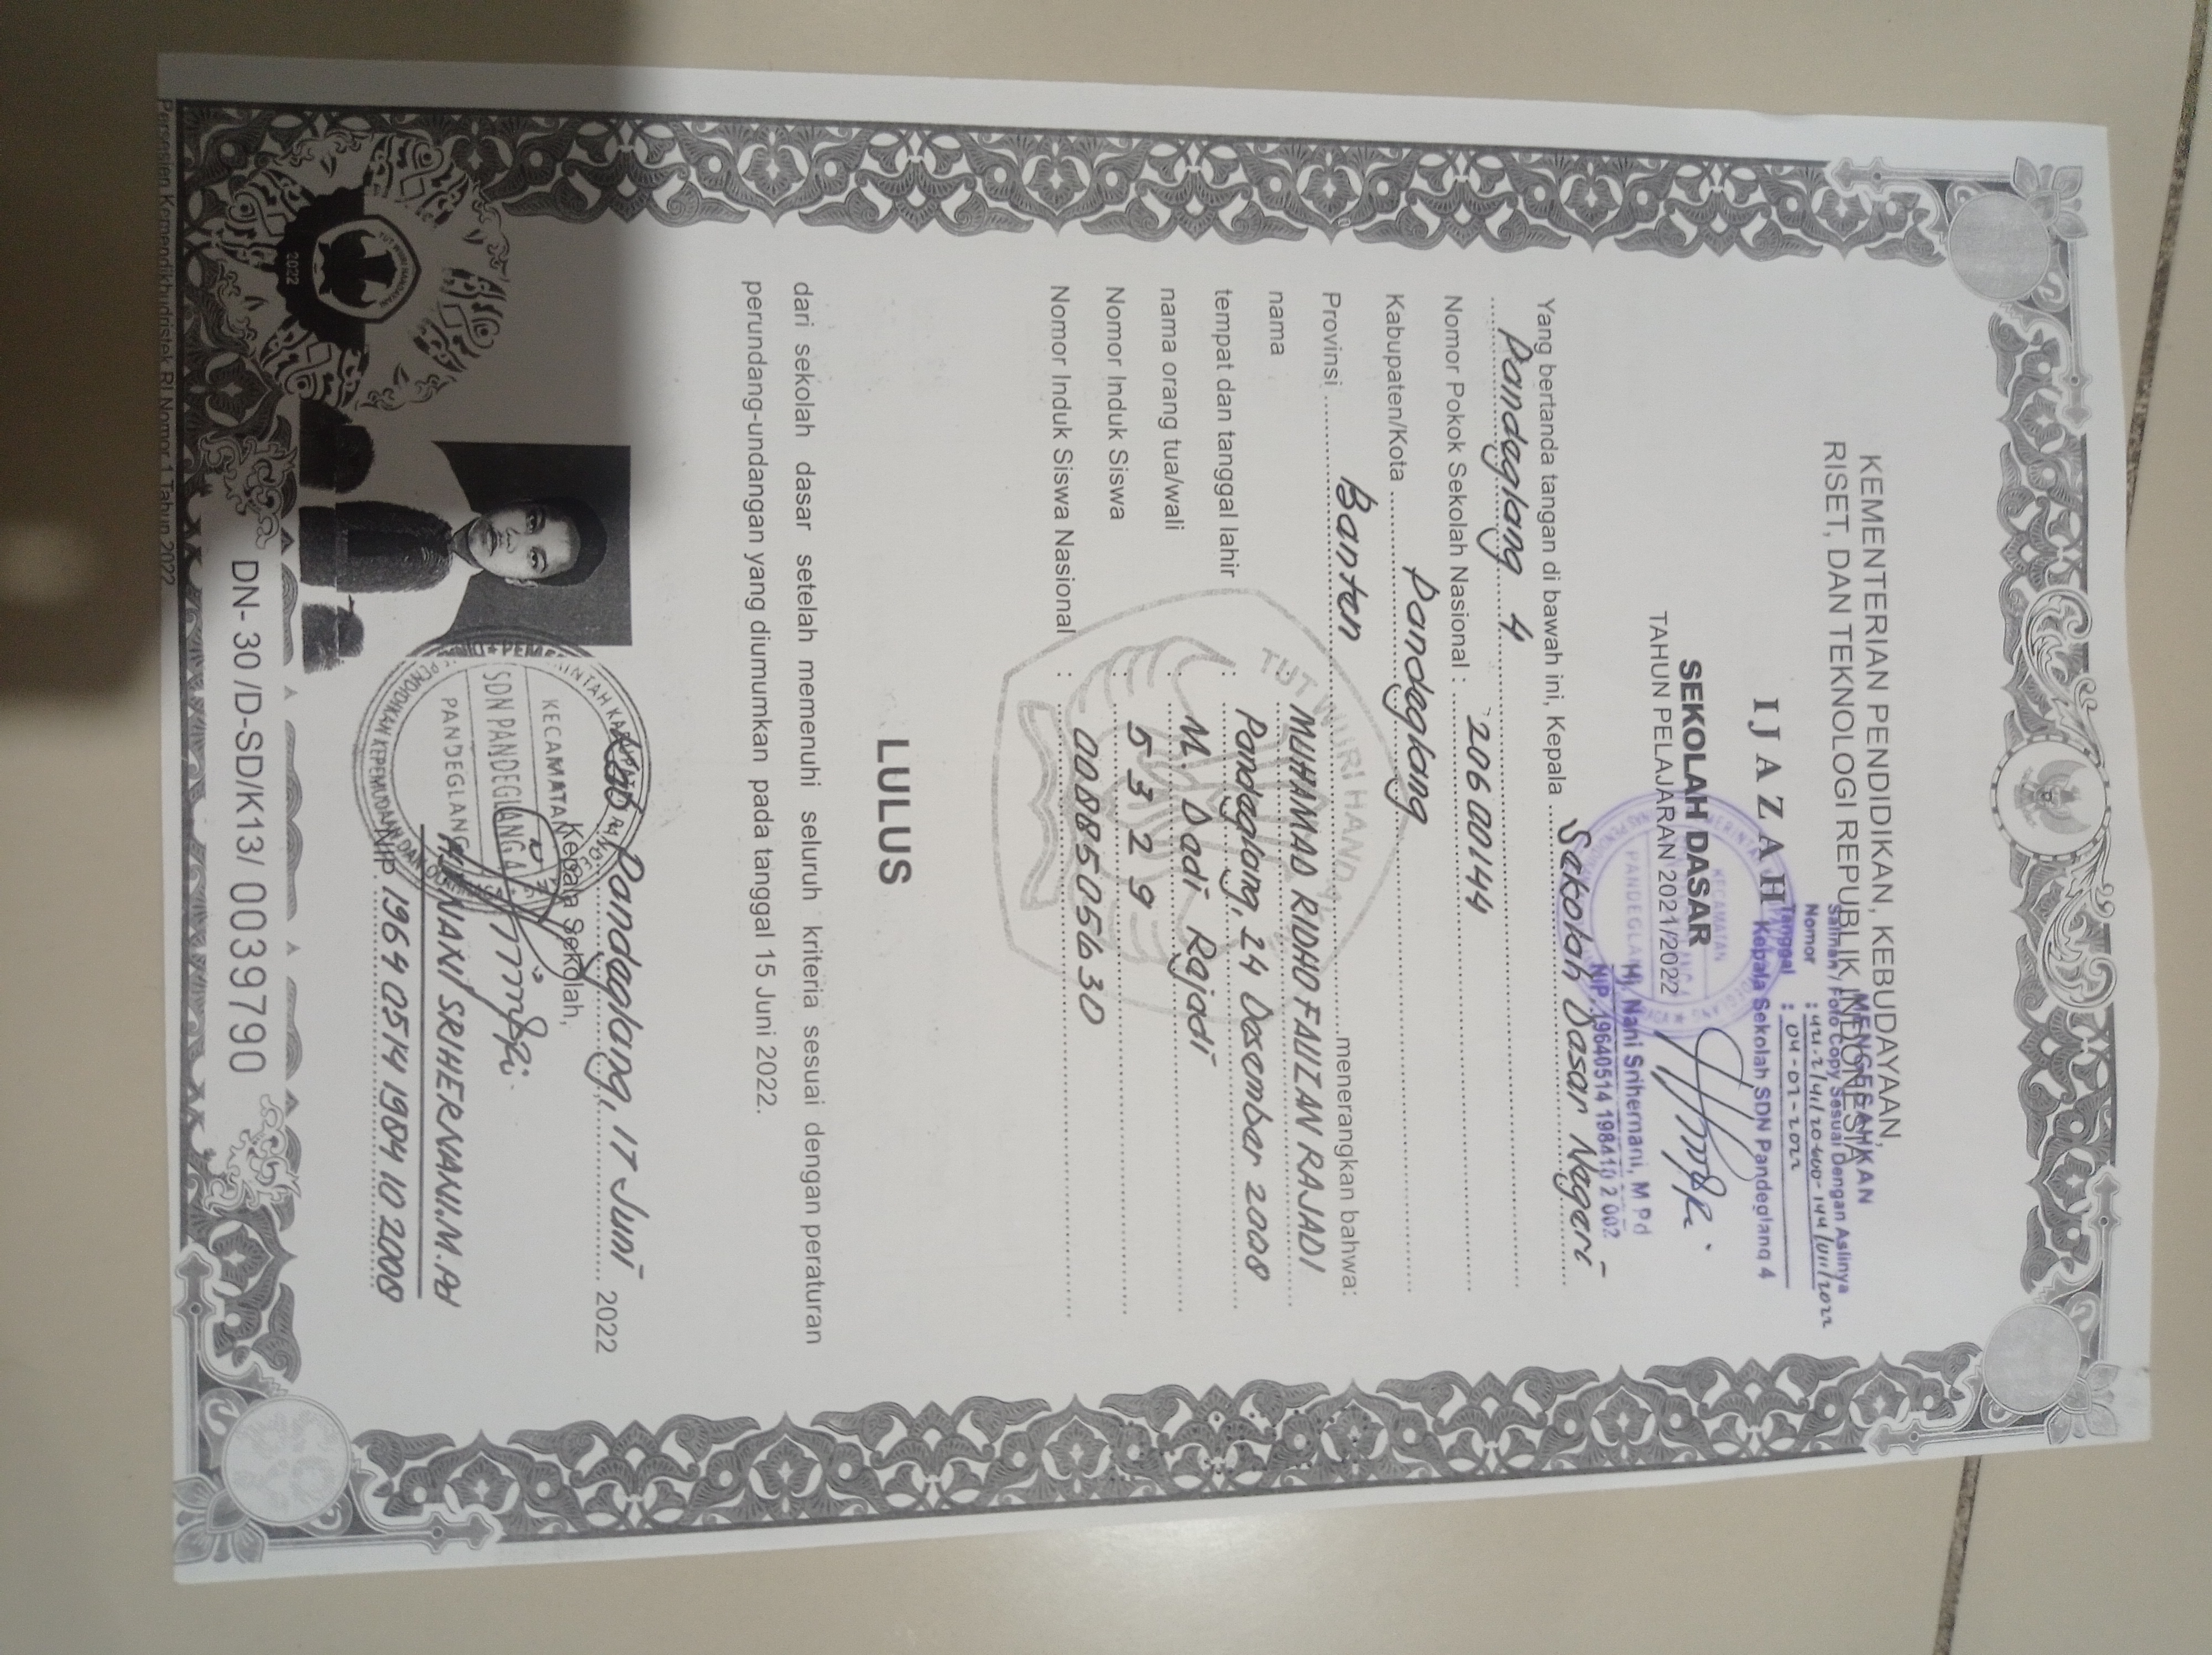 KEMENTERIAN PENDIDIKAN, KEBUDAYAAN,
RISET, DAN TEKNOLOGI REPUBLIK INDONESIA
MENGESAHKAN
Salinan / Foto Copy Sesuai Dengan Aslinya
Nomor : 421.2/41/20600144/VII/2022
Tanggal : 04-07-2022
Kepala Sekolah SDN Pandeglang 4
Hj. Nani Srihernani, M Pd
NIP. 19640514 198410 2 002
IJAZAH
SEKOLAH DASAR
TAHUN PELAJARAN 2021/2022
Yang bertanda tangan di bawah ini, Kepala Sekolah Dasar Negeri
Pandeglang 4
Nomor Pokok Sekolah Nasional : 20600144
Kabupaten/Kota Pandeglang
Provinsi Banten menerangkan bahwa:
nama : MUHAMAD RIDHO FAUZAN RAJADI
tempat dan tanggal lahir : Pandeglang, 24 Desember 2008
nama orang tua/wali : M. Dadi Rajadi
Nomor Induk Siswa : 5329
Nomor Induk Siswa Nasional : 0088505630
TUT WURI HANDAYANI
LULUS
dari sekolah dasar setelah memenuhi seluruh kriteria sesuai dengan peraturan
perundang-undangan yang diumumkan pada tanggal 15 Juni 2022.
Kab Pandeglang, 17 Juni 2022
Kepala Sekolah,
KECAMATAN
SDN PANDEGLANG 4
PANDEGLANG
Hj. NANI SRIHERNANI.M.Pd
NIP. 19640514 198410 2008
TUT WURI HANDAYANI
2022
DN- 30 /D-SD/K13/ 0039790
Persesjen Kemendikbudristek RI Nomor 1 Tahun 2022